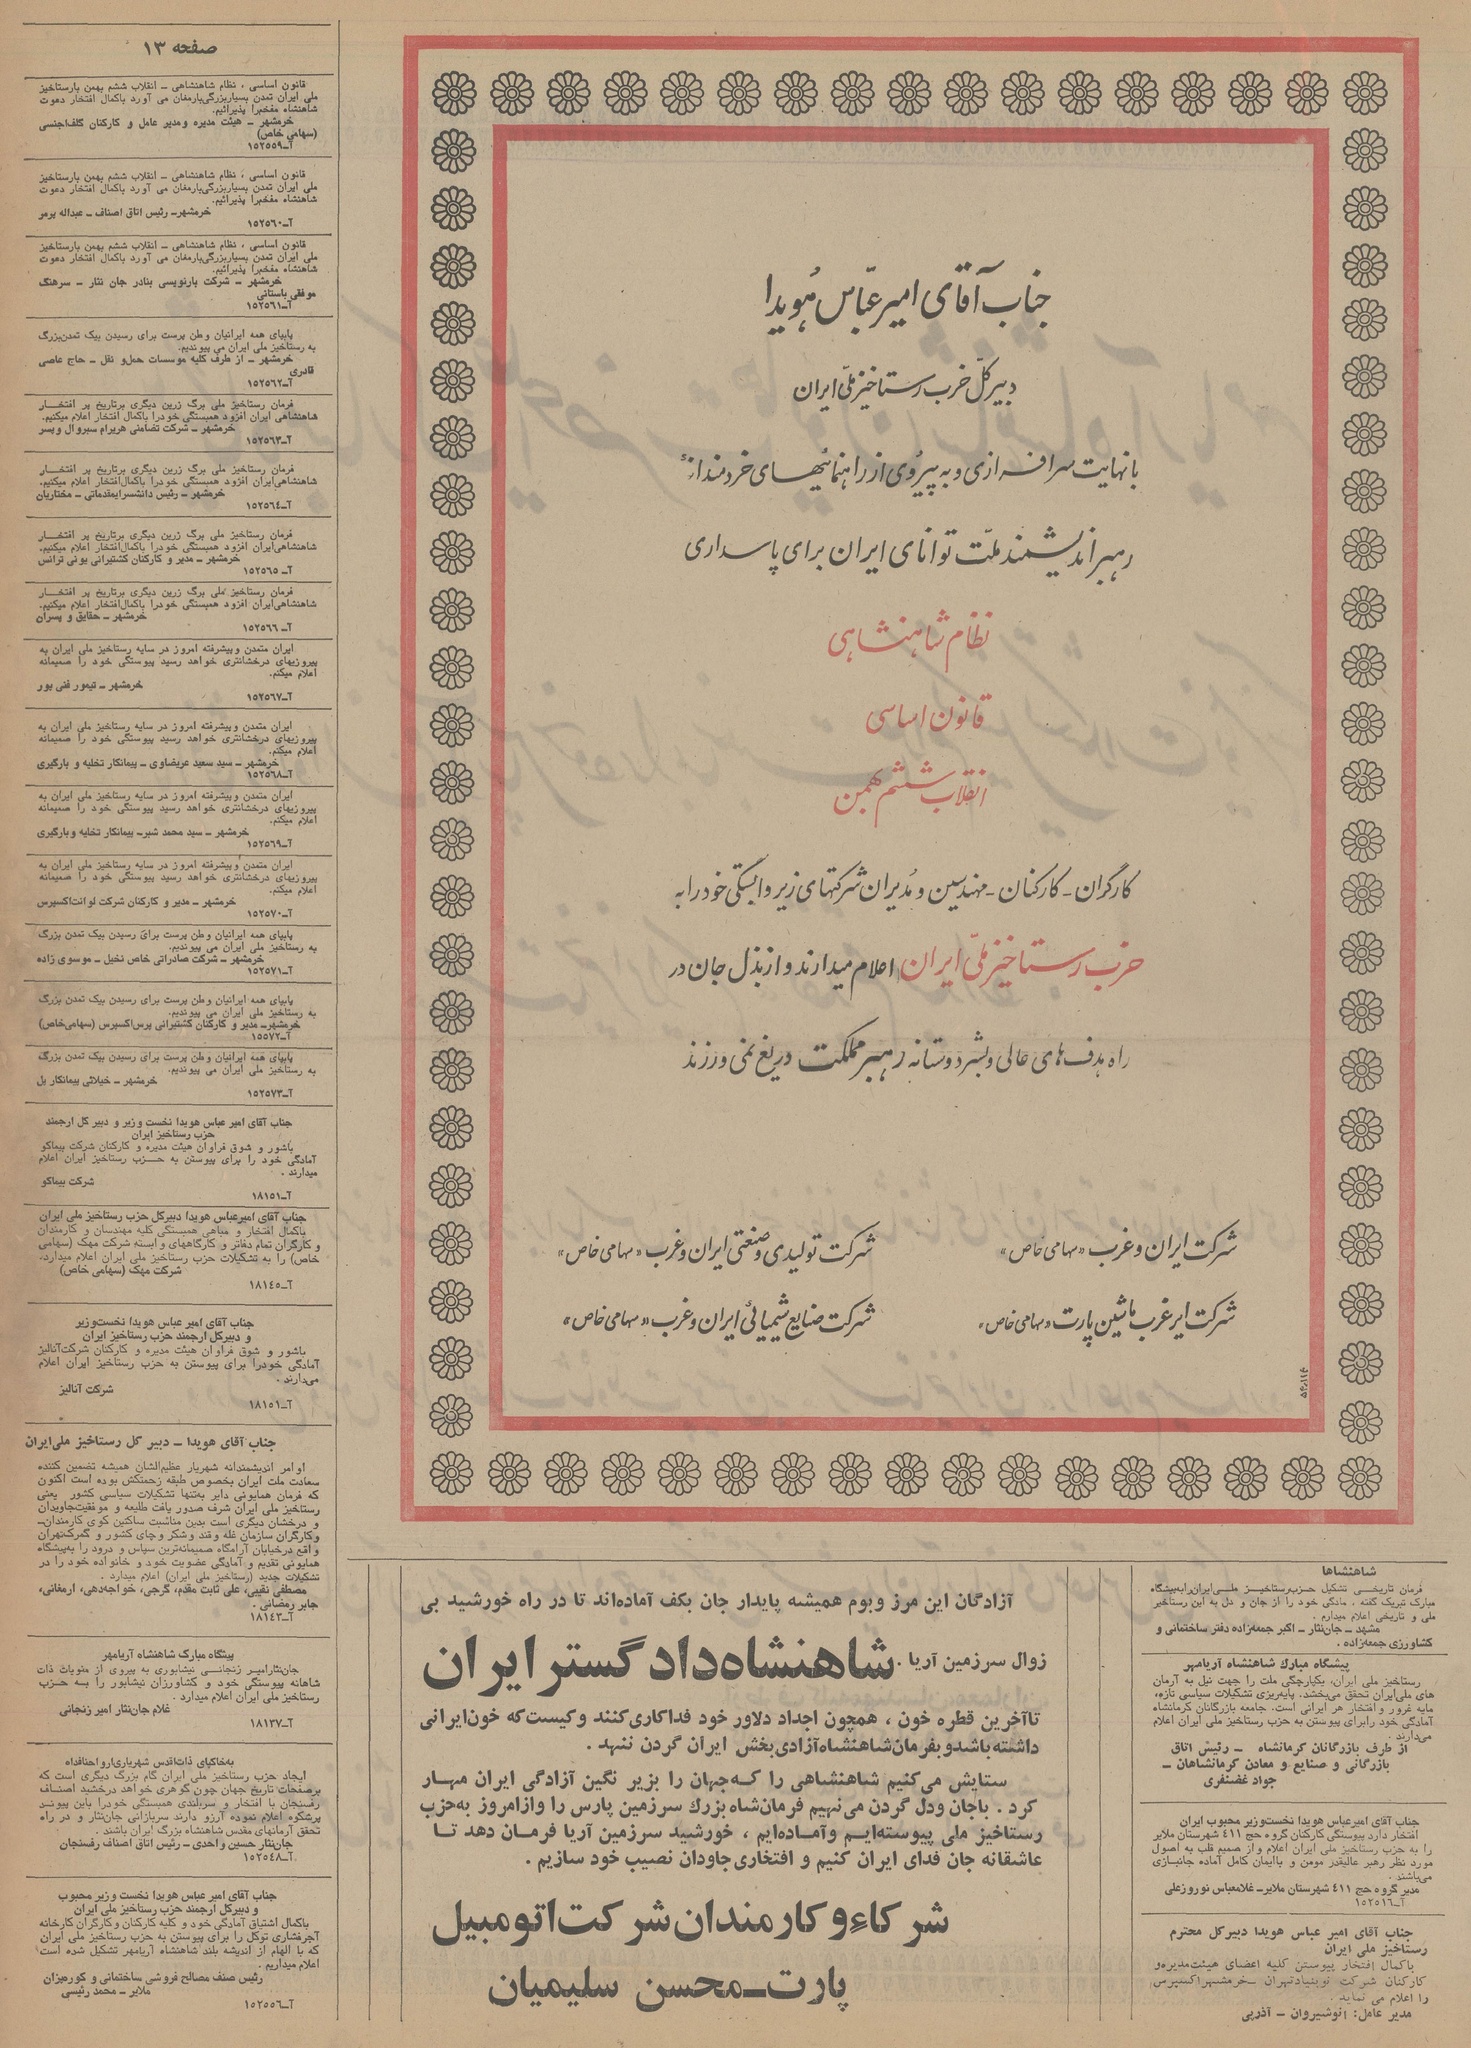 صفحه ۱۳
جناب آقای امیر عبّاس هُویدا
دبیر کلّ حزب رستاخیز ملّی ایران
با نهایت سرافرازی و به پیروی از راهنمائیهای خردمندانهٔ
رهبر اندیشمند ملّت توانای ایران برای پاسداری
نظام شاهنشاهی
قانون اساسی
انقلاب ششم بهمن
کارگران - کارکنان - مهندسین و مُدیران شرکتهای زیر وابستگی خود را به
حزب رستاخیز ملّی ایران اعلام میدارند و از بذل جان در
راه هدف های عالی و بشردوستانه رهبر مملکت دریغ نمی ورزند
شرکت ایران و غرب «سهامی خاص»
شرکت تولیدی و صنعتی ایران و غرب «سهامی خاص»
شرکت ایرغرب ماشین پارت «سهامی خاص»
شرکت صنایع شیمیائی ایران و غرب «سهامی خاص»
قانون اساسی ، نظام شاهنشاهی ـ انقلاب ششم بهمن بارستاخیز
ملی ایران تمدن بسیاربزرگی‌بارمغان می آورد باکمال افتخار دعوت
شاهنشاه مفخم‌را پذیرائیم.
خرمشهر ـ هیئت مدیره ومدیر عامل و کارکنان گلف‌اجنسی
(سهامی خاص)
آـ۱۵۲۵۵۹
قانون اساسی ، نظام شاهنشاهی ـ انقلاب ششم بهمن بارستاخیز
ملی ایران تمدن بسیاربزرگی‌بارمغان می آورد باکمال افتخار دعوت
شاهنشاه مفخم‌را پذیرائیم.
خرمشهرـ رئیس اتاق اصناف ـ عبداله پرمو
آـ۱۵۲۵۶۰
قانون اساسی ، نظام شاهنشاهی ـ انقلاب ششم بهمن بارستاخیز
ملی ایران تمدن بسیاربزرگی‌بارمغان می آورد باکمال افتخار دعوت
شاهنشاه مفخم‌را پذیرائیم.
خرمشهر ـ شرکت بارنویسی بنادر جان نثار ـ سرهنگ
موفقی باستانی
آـ۱۵۲۵۶۱
پابپای همه ایرانیان وطن پرست برای رسیدن بیک تمدن‌بزرگ
به رستاخیز ملی ایران می پیوندیم.
خرمشهر ـ از طرف کلیه موسسات حمل‌و نقل ـ حاج عاصی
قادری
آـ۱۵۲۵۶۲
فرمان رستاخیز ملی برگ زرین دیگری برتاریخ پر افتخـار
شاهنشاهی ایران افزود همبستگی خودرا باکمال افتخار اعلام میکنیم.
خرمشهر ـ شرکت تضامنی هریرام سبروال وپسر
آـ۱۵۲۵۶۳
فرمان رستاخیز ملی برگ زرین دیگری برتاریخ پر افتخـار
شاهنشاهی‌ایران افزود همبستگی خودرا باکمال‌افتخار اعلام میکنیم.
خرمشهر ـ رئیس دانشسرایمقدماتی ـ مختاریان
آـ۱۵۲۵۶۴
فرمان رستاخیز ملی برگ زرین دیگری برتاریخ پر افتخـار
شاهنشاهی‌ایران افزود همبستگی خودرا باکمال‌افتخار اعلام میکنیم.
خرمشهر ـ مدیر و کارکنان کشتیرانی یونی ترانس
آـ۱۵۲۵۶۵
فرمان رستاخیز ملی برگ زرین دیگری برتاریخ پر افتخـار
شاهنشاهی‌ایران افزود همبستگی خودرا باکمال‌افتخار اعلام میکنیم.
خرمشهر ـ حقایق و پسران
آـ۱۵۲۵۶۶
ایران متمدن وپیشرفته امروز در سایه رستاخیز ملی ایران به
پیروزیهای درخشانتری خواهد رسید پیوستگی خود را صمیمانه
اعلام میکنم.
خرمشهر ـ تیمور غنی پور
آـ۱۵۲۵۶۷
ایران متمدن وپیشرفته امروز در سایه رستاخیز ملی ایران به
پیروزیهای درخشانتری خواهد رسید پیوستگی خود را صمیمانه
اعلام میکنم.
خرمشهر ـ سید سعید عریضاوی ـ پیمانکار تخلیه و بارگیری
آـ۱۵۲۵۶۸
ایران متمدن وپیشرفته امروز در سایه رستاخیز ملی ایران به
پیروزیهای درخشانتری خواهد رسید پیوستگی خود را صمیمانه
اعلام میکنم.
خرمشهر ـ سید محمد شبرـ پیمانکار تخلیه وبارگیری
آـ۱۵۲۵۶۹
ایران متمدن وپیشرفته امروز در سایه رستاخیز ملی ایران به
پیروزیهای درخشانتری خواهد رسید پیوستگی خود را صمیمانه
اعلام میکنم.
خرمشهر ـ مدیر و کارکنان شرکت لوانت‌اکسپرس
آـ۱۵۲۵۷۰
پابپای همه ایرانیان وطن پرست برای رسیدن بیک تمدن بزرگ
به رستاخیز ملی ایران می پیوندیم.
خرمشهر ـ شرکت صادراتی خاص نخیل ـ موسوی زاده
آـ۱۵۲۵۷۱
پابپای همه ایرانیان وطن پرست برای رسیدن بیک تمدن بزرگ
به رستاخیز ملی ایران می پیوندیم.
خرمشهرـ مدیر و کارکنان کشتیرانی پرس‌اکسپرس (سهامی‌خاص)
آـ۱۵۵۷۲
پابپای همه ایرانیان وطن پرست برای رسیدن بیک تمدن بزرگ
به رستاخیز ملی ایران می پیوندیم.
خرمشهر ـ خیلائی پیمانکار پل
آـ۱۵۲۵۷۳
جناب آقای امیر عباس هویدا نخست وزیر و دبیر کل ارجمند
حزب رستاخیز ایران
باشور و شوق فراوان هیئت مدیره و کارکنان شرکت بیماکو
آمادگی خود را برای پیوستن به حـزب رستاخیز ایران اعلام
میدارند .
شرکت بیماکو
آـ۱۸۱۵۱
جناب آقای امیرعباس هویدا دبیرکل حزب رستاخیز ملی ایران
باکمال افتخار و مباهی همبستگی کلیه مهندسان و کارمندان
و کارگران تمام دفاتر و کارگاههای وابسته شرکت مهک (سهامی
خاص) را به تشکیلات حزب رستاخیز ملی ایران اعلام میدارد.
شرکت مهک (سهامی خاص)
آـ۱۸۱۴۵
جناب آقای امیر عباس هویدا نخست‌وزیر
و دبیرکل ارجمند حزب رستاخیز ایران
باشور و شوق فراوان هیئت مدیره و کارکنان شرکت‌آنالیز
آمادگی خودرا برای پیوستن به حزب رستاخیز ایران اعلام
می‌دارند .
شرکت آنالیز
آـ۱۸۱۵۱
جناب آقای هویدا ـ دبیر کل رستاخیز ملی‌ایران
اوامر اندیشمندانه شهریار عظیم‌الشان همیشه تضمین کننده
سعادت ملت ایران بخصوص طبقه زحمتکش بوده است اکنون
که فرمان همایونی دایر به‌تنها تشکیلات سیاسی کشور یعنی
رستاخیز ملی ایران شرف صدور یافت طلیعه و موفقیت‌جاویدان
و درخشان دیگری است بدین مناسبت ساکنین کوی کارمندانـ
وکارگران سازمان غله وقند وشکر وچای کشور و گمرک‌تهران
واقع درخیابان آرامگاه صمیمانه‌ترین سپاس و درود را به‌پیشگاه
همایونی تقدیم و آمادگی عضویت خود و خانواده خود را در
تشکیلات جدید (رستاخیز ملی ایران) اعلام میدارد .
مصطفی نقیبی، علی ثابت مقدم، گرجی، خواجه‌دهی، ارمغانی،
جابر رمضانی .
آـ۱۸۱۴۳
پیشگاه مبارک شاهنشاه آریامهر
جان‌نثارامیر زنجانی نیشابوری به پیروی از منویات ذات
شاهانه پیوستگی خود و کشاورزان نیشابور را بـه حـزب
رستاخیز ملی ایران اعلام میدارد .
غلام جان‌نثار امیر زنجانی
آـ۱۸۱۳۷
به‌خاکپای ذات‌اقدس شهریاری‌ارواحنافداه
ایجاد حزب رستاخیز ملی ایران گام بزرگ دیگری است که
برصفحات تاریخ جهان چون گوهری خواهد درخشید اصنـاف
رفسنجان با افتخار و سربلندی همبستگی خودرا باین پیونـد
پرشکوه اعلام نموده آرزو دارند سربازانی جان‌نثار و در راه
تحقق آرمانهای مقدس شاهنشاه بزرگ ایران باشند .
جان‌نثار حسین واحدی ـ رئیس اتاق اصناف رفسنجان
آـ۱۵۲۵۴۸
جناب آقای امیر عباس هویدا نخست وزیر محبوب
و دبیرکل ارجمند حزب رستاخیز ملی ایران
باکمال اشتیاق آمادگی خود و کلیه کارکنان وکارگران کارخانه
آجرفشاری توکل را برای پیوستن به حزب رستاخیز ملی ایران
که با الهام از اندیشه بلند شاهنشاه آریامهر تشکیل شده است
اعلام میداریم .
رئیس صنف مصالح فروشی ساختمانی و کوره‌پزان
ملایر ـ محمد رئیسی
آـ۱۵۲۵۵۶
آزادگان این مرز وبوم همیشه پایدار جان بکف آماده‌اند تا در راه خورشید بی
زوال سرزمین آریا . شاهنشاه دادگستر ایران
تاآخرین قطره خون ، همچون اجداد دلاور خود فداکاری‌کنند وکیست‌که خون‌ایرانی
داشته‌باشدوبفرمان‌شاهنشاه‌آزادی‌بخش ایران گردن ننهد .
ستایش می‌کنیم شاهنشاهی را کـه‌جهان را بزیر نگین آزادگی ایران مهـار
کرد . باجان ودل گردن می‌نهیم فرمان‌شاه بزرک سرزمین پارس را وازامروز به‌حزب
رستاخیز ملی پیوسته‌ایـم وآماده‌ایم ، خورشید سرزمین آریا فرمان دهد تـا
عاشقانه جان فدای ایران کنیم و افتخاری‌جاودان نصیب خود سازیم .
شرکاء و کارمندان شرکت اتومبیل
پارت ـ محسن سلیمیان
شاهنشاها
فرمان تاریخـی تشکیل حـزب‌رستاخیـز ملـی‌ایران‌رابه‌پیشگاه
مبارک تبریک گفته ، مادگی خود را از جان و دل به این رستاخیز
ملی و تاریخی اعلام میدارم .
مشهد ـ جان‌نثار ـ اکبر جمعه‌زاده دفتر ساختمانی و
کشاورزی جمعه‌زاده .
پیشگاه مبارک شاهنشاه آریامهر
رستاخیز ملی ایران، یکپارچگی ملت را جهت نیل به آرمان
های ملی‌ایران تحقق می‌بخشد. پایه‌ریزی تشکیلات سیاسی تازه،
مایه غرور و افتخار هر ایرانی است. جامعه بازرگانان کرمانشاه
آمادگی خود رابرای پیوستن به حزب رستاخیز ملی ایران اعلام
می‌دارند.
از طرف بازرگانان کرمانشاه ـ رئیس اتاق
بازرگانی و صنایع و معادن کرمانشاهان ـ
جواد غضنفری
جناب آقای امیرعباس هویدا نخست‌وزیر محبوب ایران
افتخار دارد پیوستگی کارکنان گروه حج ۴۱۱ شهرستان ملایر
را به حزب رستاخیز ملی ایران اعلام واز صمیم قلب به اصول
مورد نظر رهبر عالیقدر مومن و باایمان کامل آماده جانبـازی
می‌باشند .
مدیر گروه حج ۴۱۱ شهرستان ملایرـ غلامعباس نوروزعلی
آـ۱۵۲۵۱۶
جناب آقای امیر عباس هویدا دبیرکل محترم
رستاخیز ملی ایران
باکمال افتخار پیوستن کلیه اعضای هیئت‌مدیره‌و
کارکنان شرکت نوبنیادتهران ـخرمشهراکسپرس
را اعلام می نماید .
مدیر عامل: انوشیروان ـ آذریی